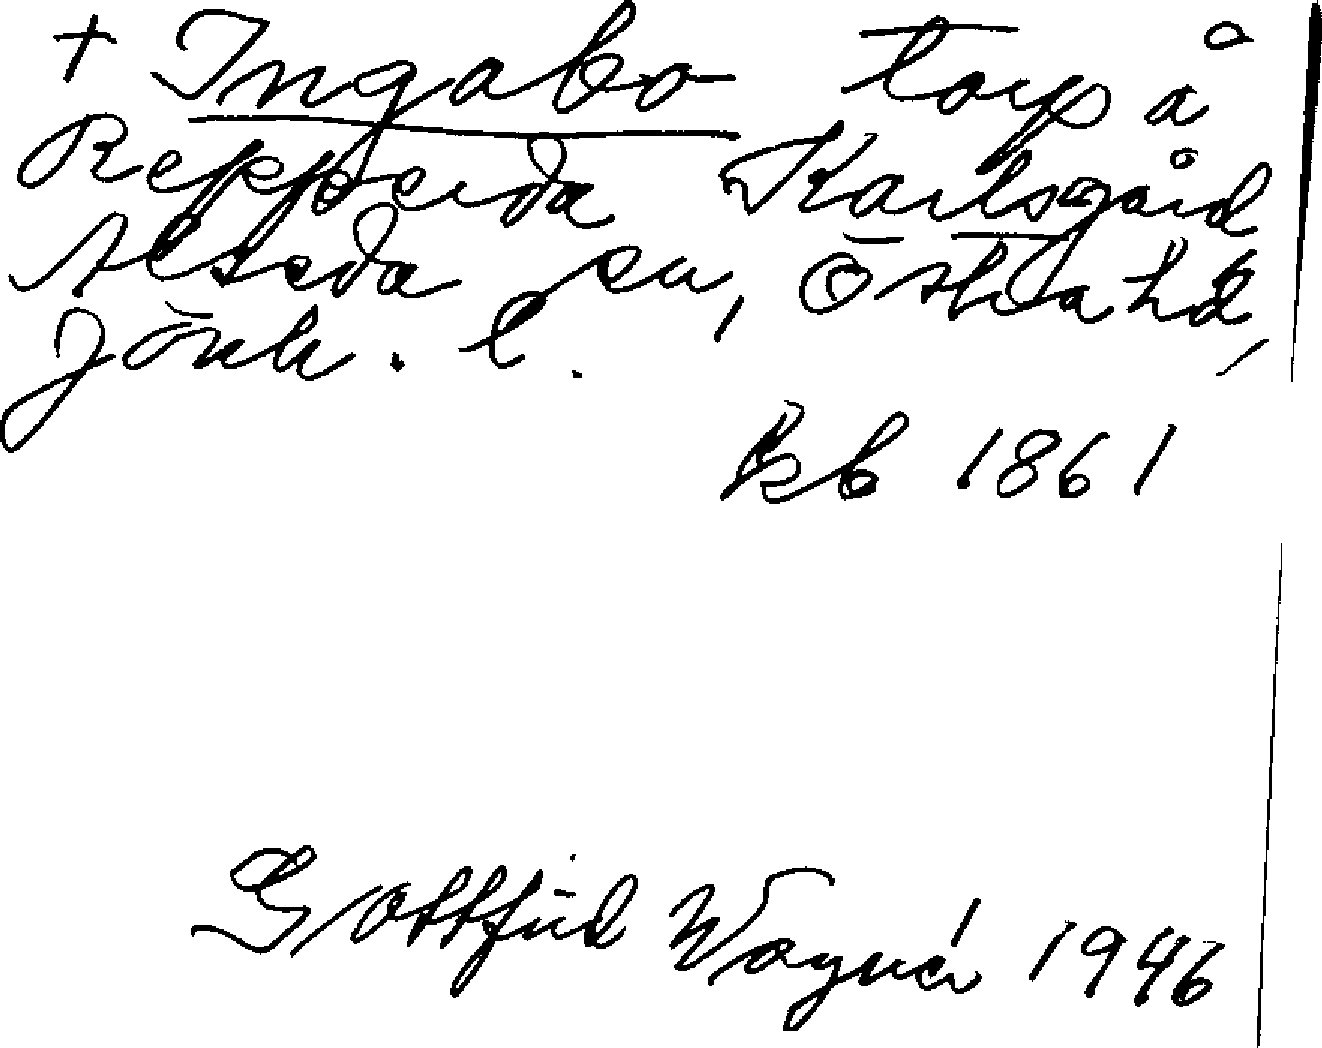 † Ingabo torp å
Repperda Karlsgård
Alseda sn, Östra hd,
Jönk. l.
kb 1861
Gottfrid Wagnér 1946